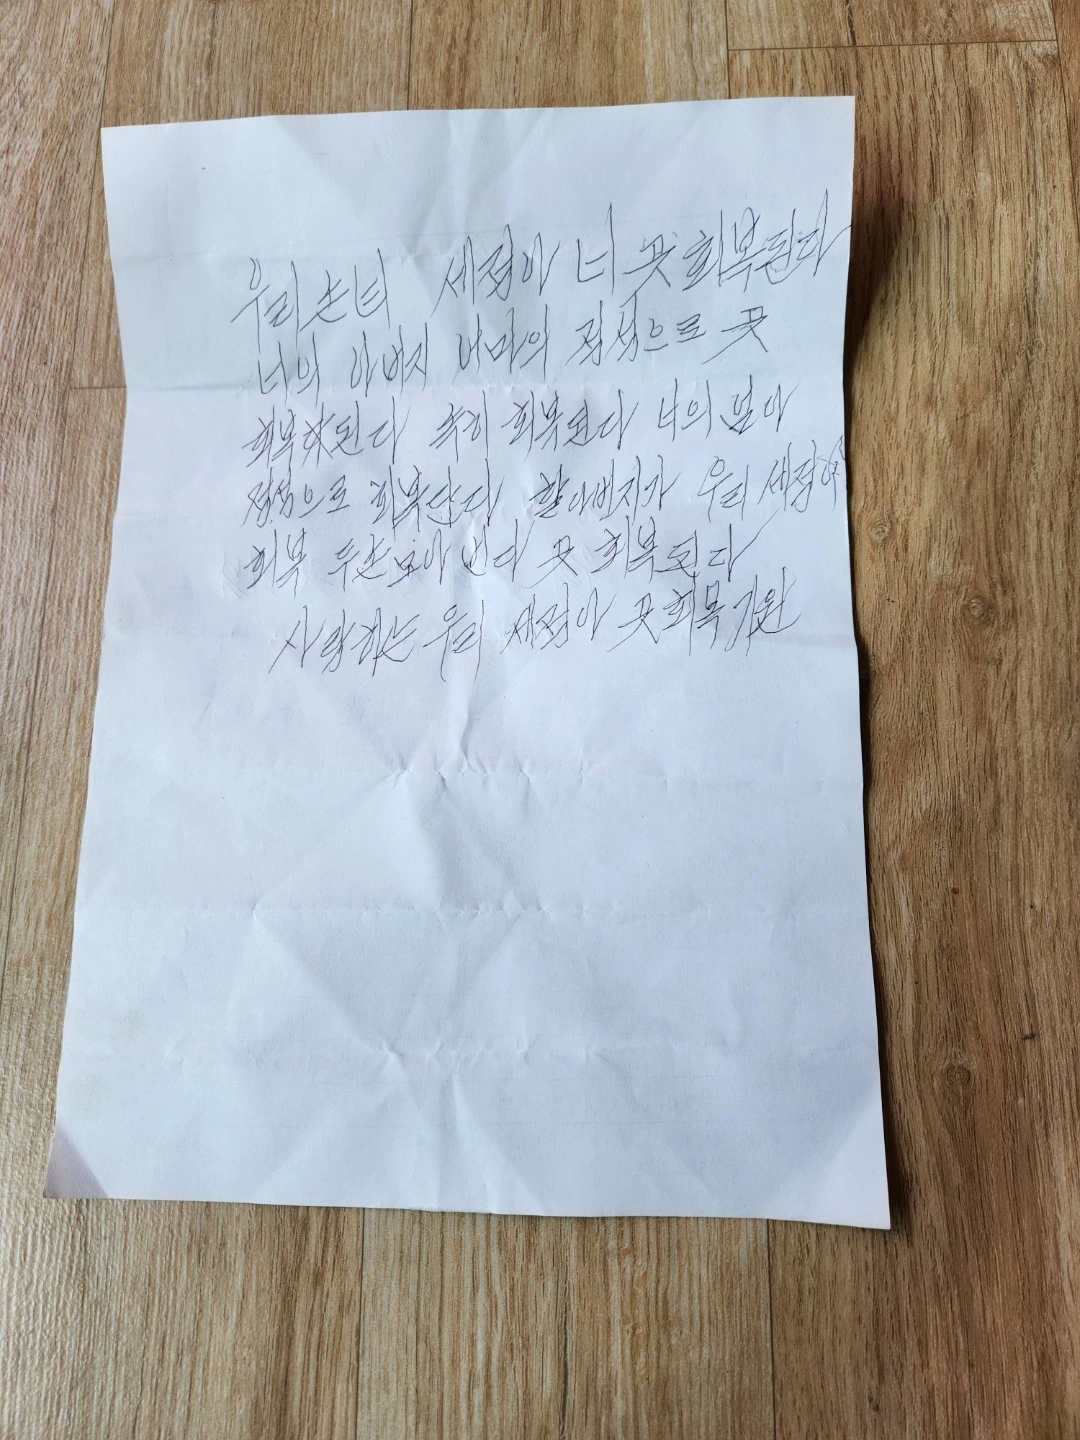 우리손녀 세점아 너 꼿 회복된다
너의 아버지 너마의 정성으로 꼿
회복된다 속히 회복된다 너의 엄마
정성으로 회복단다 할아버지가 우리 세점아
회복 두손모아 빈다 꼿 회복된다
사랑하는 우리 세점아 꼿 회목기원